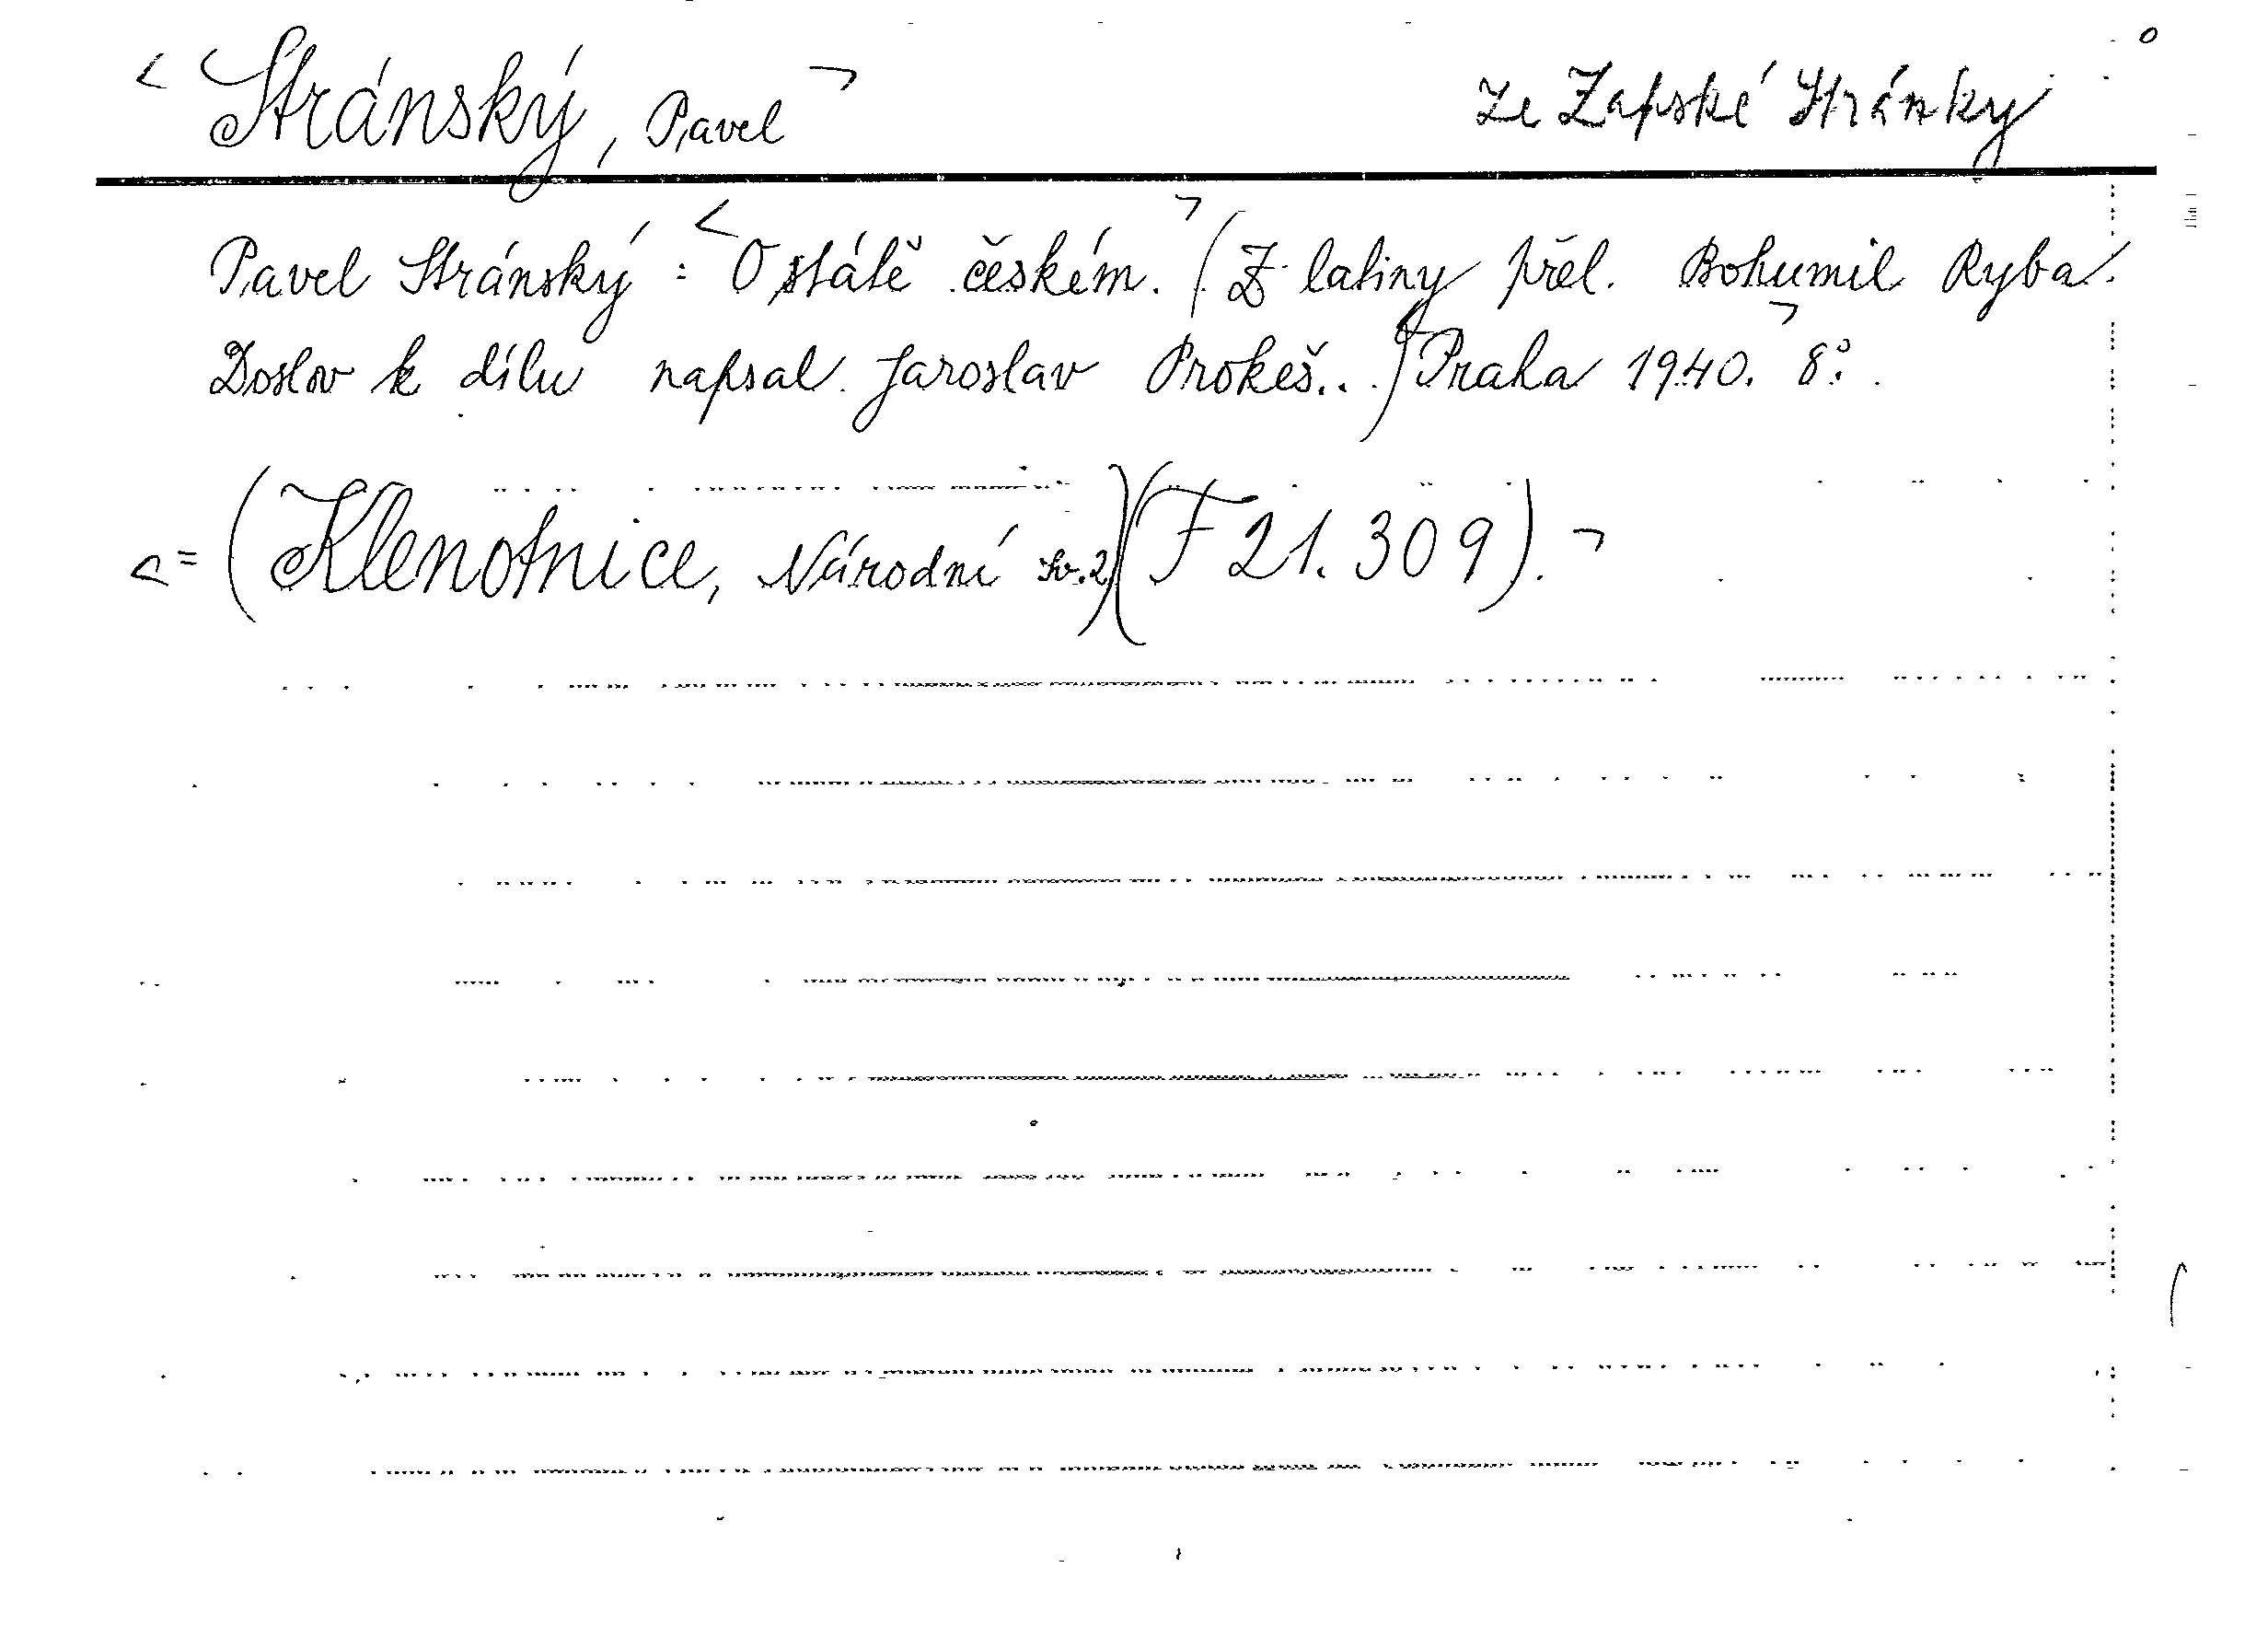 Stránský, Pavel ze Zapské Stránky
Pavel Stránský: O státě českém. (Z latiny přel. Bohumil Ryba.
Doslov k dílu napsal Jaroslav Prokeš...) Praha 1940. 8°.
= (Klenotnice, Národní sv.2) (F 21.309).